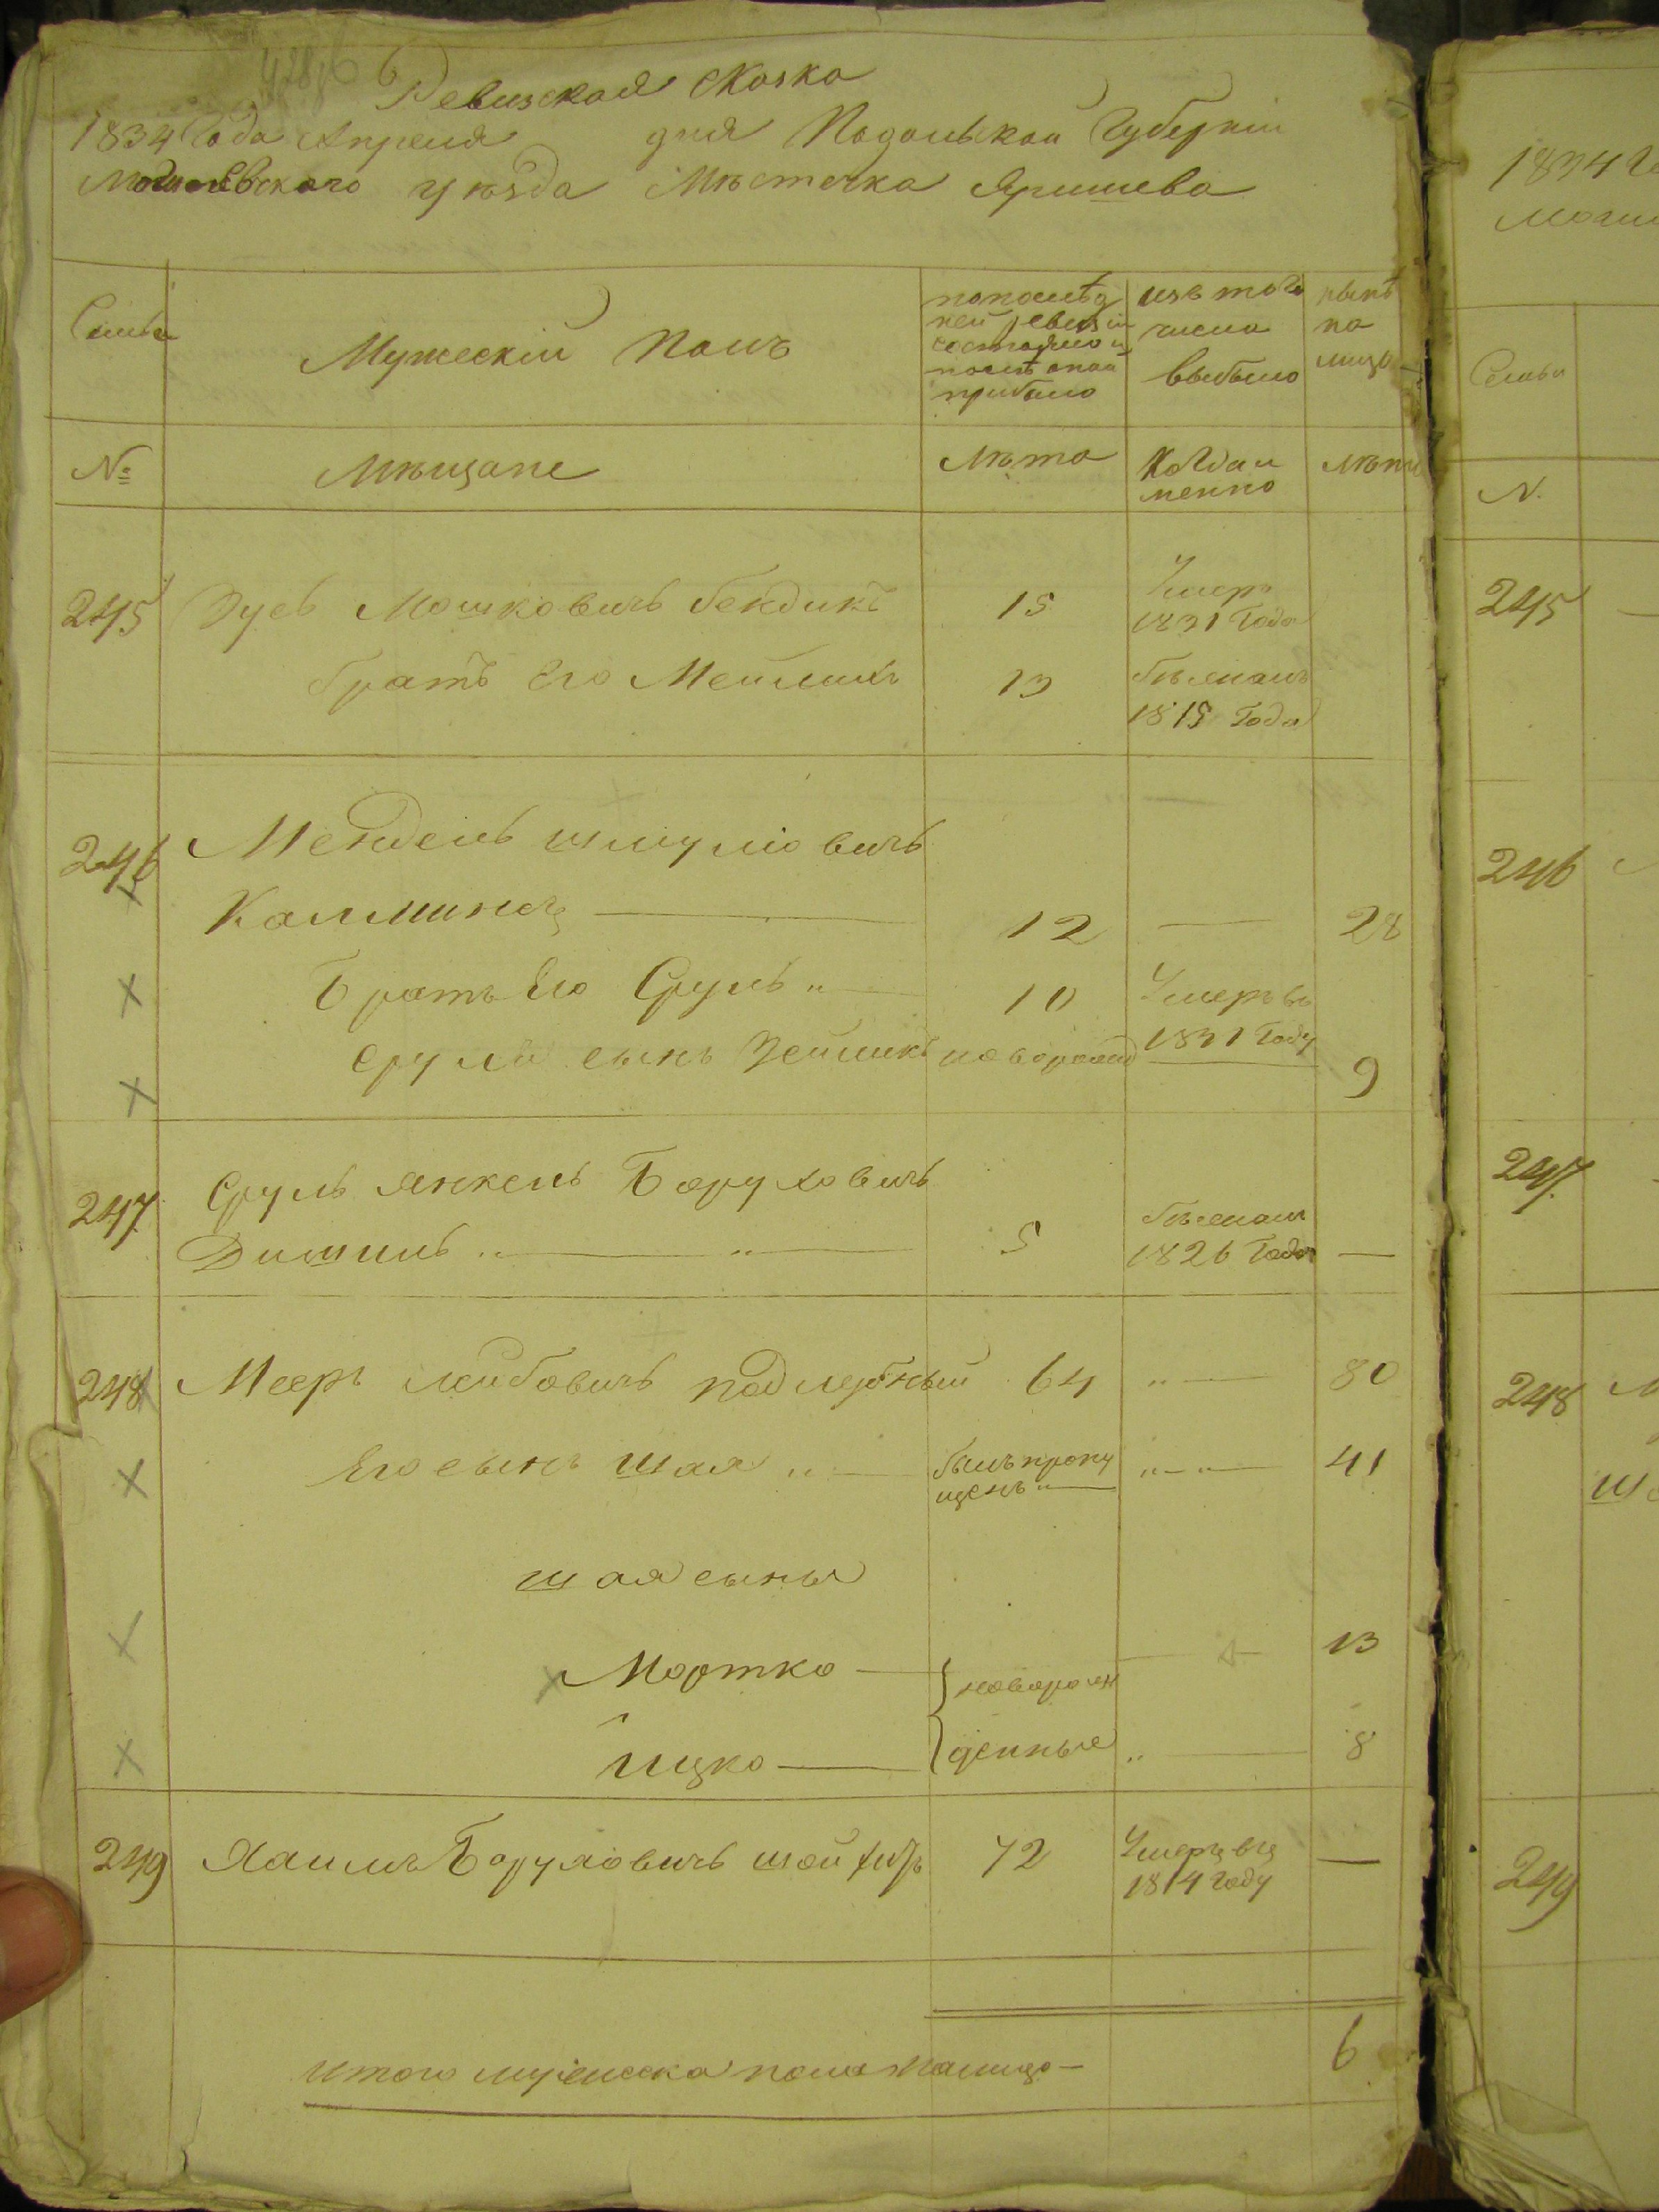 Ревизская Сказка
1834 Года Апреля дня Подольской Губерніи
Могилевского уѣзда Мѣстечка Яришева
Семьи
Мужескій Полъ
по послѣд
ней ревизіи
состояло и
послѣ оной
прибыло
изъ того
числа
выбыло
нынѣ
на
лицо
№
Мѣщане
Лѣта
Когда и
менно
Лѣта
245 Зусь Мошковичъ бендикъ 15 Умеръ
1831 Года
братъ Его Мейлихъ 13 бѣжалъ
1815 Года
246 Мендель шмулiовичъ
Калминец 12 — 28
Братъ Его Сруль 10 Умеръ въ
1831 Году
Сруля сынъ Зейликъ новорожд 9
247 Сруль Янкель Боруховичъ
Дишиль 5 бѣжалъ
1826 Года —
248 Меер лейбовичъ подлубный 64 „— 80
Его сынъ шая „— былъ пропу
щенъ „— „—„— 41
шая сыны
Мортко — новорож 13
Ицко — денные „— 8
249 Хаимъ Боруховичъ шойхеръ 72 Умеръ въ
1814 Году —
Итого мужеска пола налицо — 6
1834
Моги
Семьи
N.
245
246
247
248
249